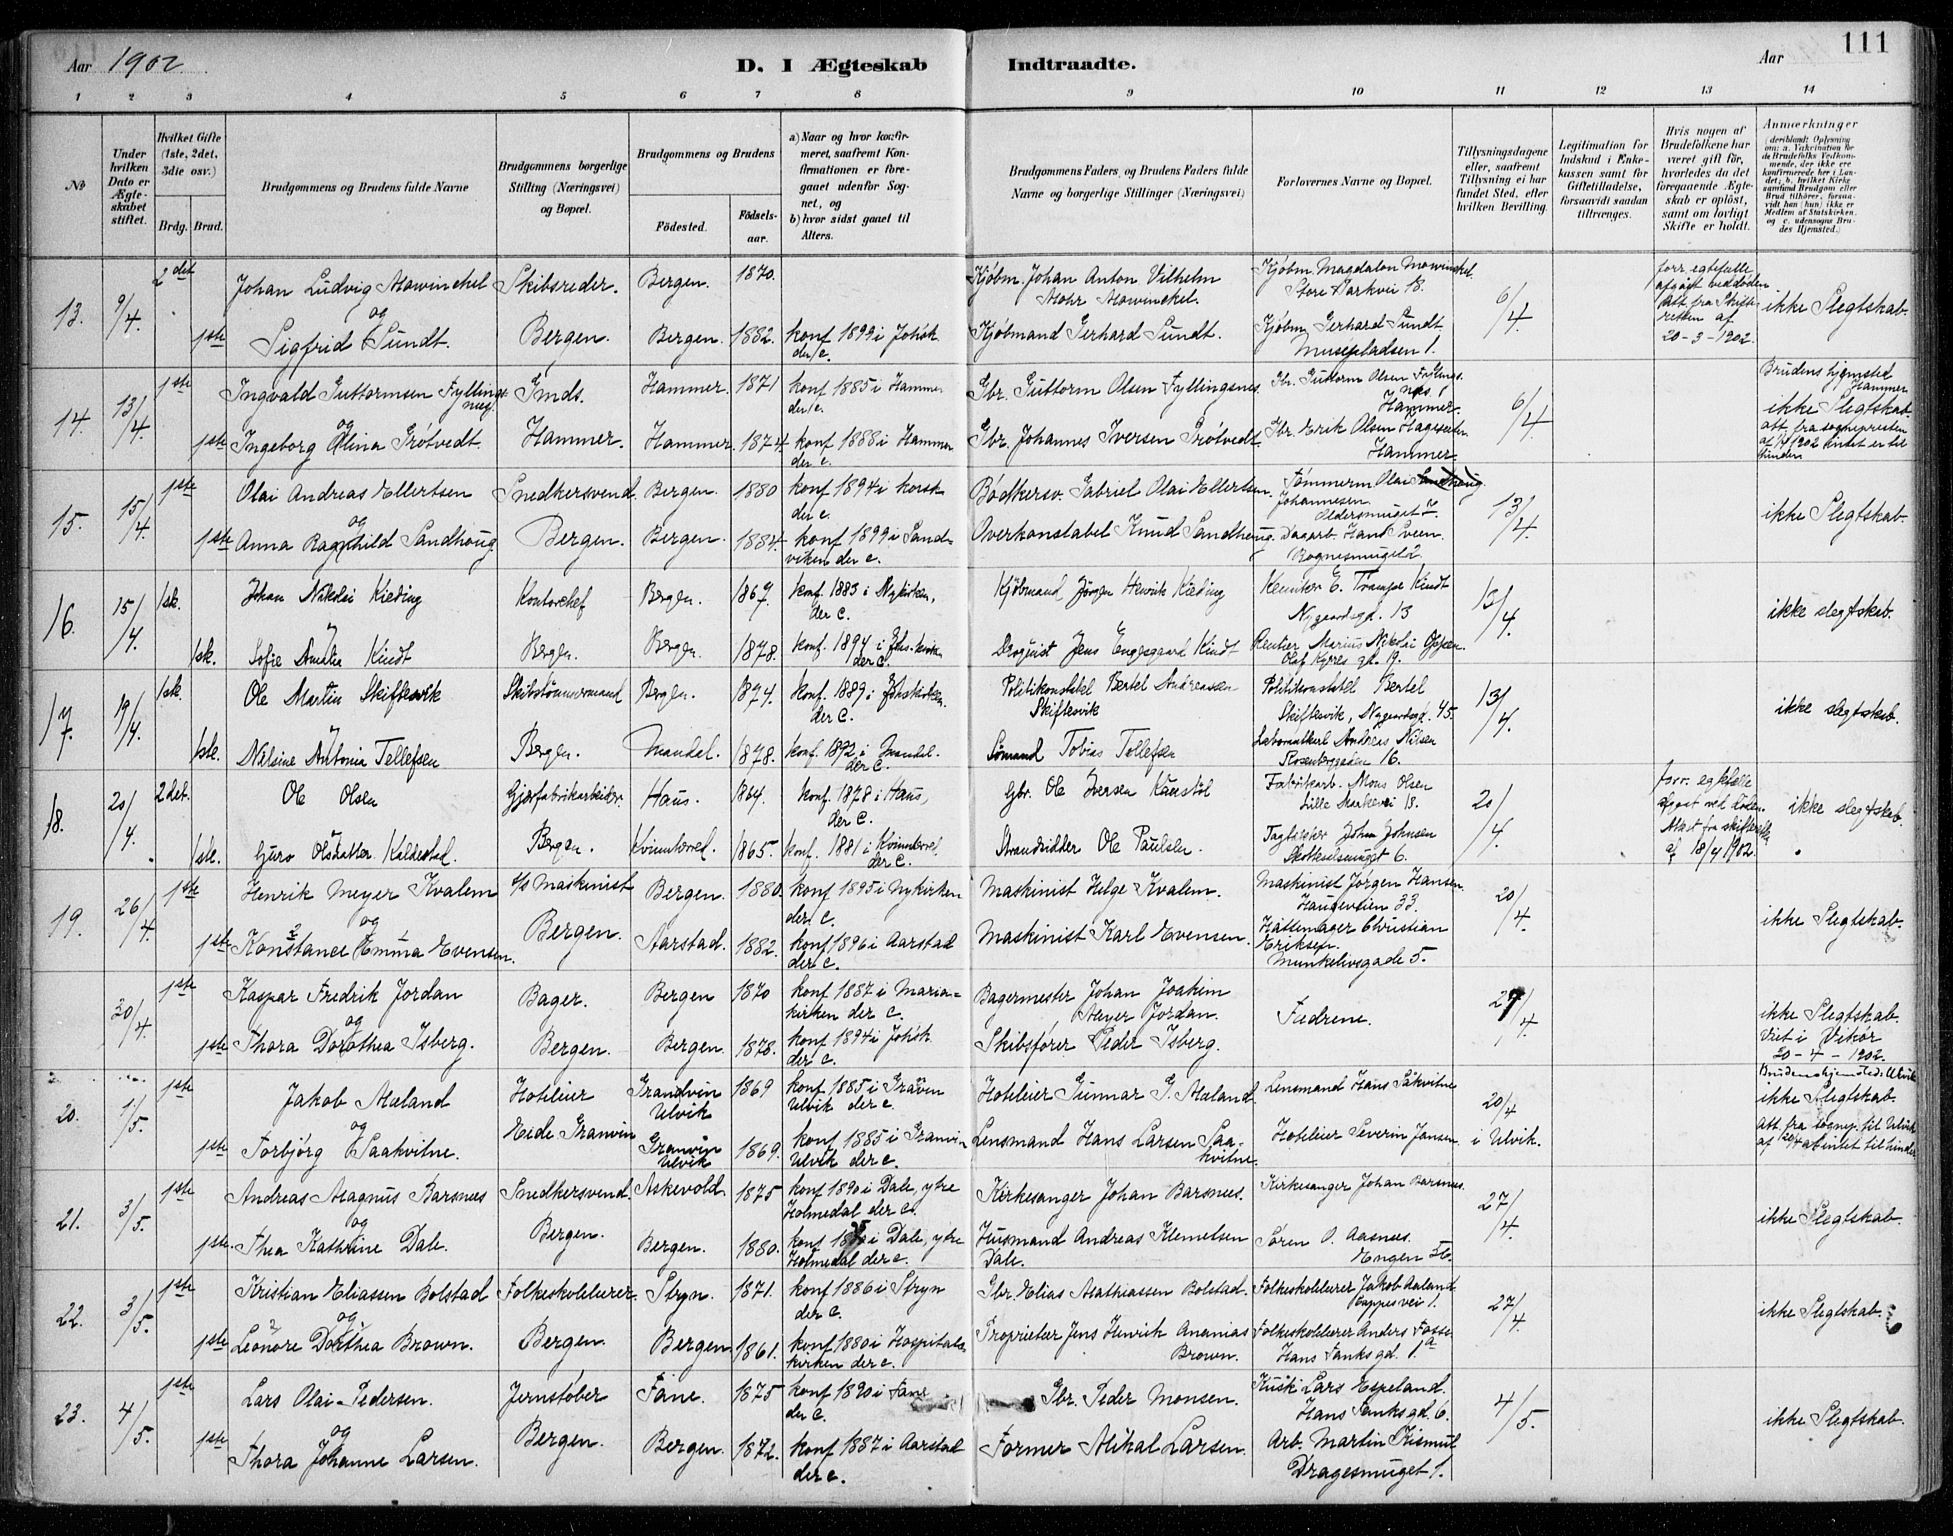 Aar 1902.
D. I Ægteskab Indtraadte.
Aar
111
1 2 3 4 5 6 7 8 9 10 11 12 13 14
No
Under hvilken Dato er Ægteskabet stiftet.
Hvilket Gifte (1ste, 2det, 3die osv.)
Brdg. Brud.
Brudgommens og Brudens fulde Navne
Brudgommens borgerlige Stilling (Næringsvei) og Bopæl.
Brudgommens og Brudens
Fødested. Fødsels-aar.
a) Naar og hvor konfirmeret, saafremt Konfirmationen er foregaaet udenfor Sognet, og
b) hvor sidst gaaet til Alters.
Brudgommens Faders, og Brudens Faders fulde Navne og borgerlige Stillinger (Næringsvei)
Forlovernes Navne og Bopæl.
Tillysningsdagene eller, saafremt Tillysning ei har fundet Sted, efter hvilken Bevilling.
Legitimation for Indskud i Enkekassen samt for Giftetilladelse, forsaavidt saadan tiltrænges.
Hvis nogen af Brudefolkene har været gift før, hvorledes da det foregaaende Ægteskab er opløst, samt om lovligt Skifte er holdt.
Anmærkninger (deriblandt: Oplysning om: a. Vakcination for de Brudefolks Vedkommende, der ikke ere konfirmerede her i Landet; b. hvilket Kirkesamfund Brudgom eller Brud tilhører, forsaavidt han (hun) ikke er Medlem af Statskirken, og c. udensogns Brudes Hjemsted.)
13. 9/4. 2det Johan Ludvig Mowinckel Skibsreder. Bergen. 1870. Kjøbm. Johan Anton Vilhelm Mohr Mowinckel. Kjøbm. Magdalon Mowinckel. Store Markvei 18. 6/4 forr. egtefælle afgaaet ved døden Att. fra Skifteretten af 20-3-1902. ikke Slegtskab.
og
1ste Sigfrid Sundt. Bergen. Bergen. 1882. konf 1899 i Johsk. der c. Kjøbmand Gerhard Sundt. Kjøbm Gerhard Sundt Musepladsen 1.
14. 13/4. 1ste Ingvald Guttormsen Fyllingsnes. Gmds. Hammer. 1871 konf 1885 i Hammer der c. Gbr. Guttorm Olsen Fyllingsnes. Gbr. Guttorm Olsen Fyllingsnes. Hammer. 6/4 Brudens hjemsted Hammer ikke Slegtskab. att. fra sognepresten
og
1ste Ingeborg Olina Grøtvedt. Hammer. Hammer 1874 konf 1888 i Hammer der c. Gbr. Johannes Iversen Grøtvedt. Gbr. Erik Olsen Hammer.
15. 15/4. 1ste Olai Andreas Ellertsen Snedkersvend. Bergen. 1880 konf 1894 i korsk. der c. Bødkersv. Gabriel Olai Ellertsen. Tømmerm Olai Johannesen. 13/4 ikke Slegtskab.
og
1ste Anna Ragnhild Sandhoug. Bergen. Bergen. 1884. konf 1899 i Sandviken der c. Overkonstabel Knud Sandhoug. Dagarb. Hans Sveen. Rognesmuget 2.
16. 15/4. 1ste. Johan Nikolai Kieding Kontorchef Bergen. 1867. konf. 1883 i Nykirken, der c. Kjøbmand Jørgen Henrik Kieding Kemiker E. Trampe Kindt Nygaardsgd. 13 13/4. ikke slegtskab.
1ste. Sofie Amalia Kindt Bergen. Bergen. 1878. konf. 1894 i Johs.kirken der c. Droguist Jens Engesgaard Kindt Rentier Marius Nikolai Oppen. Olaf Kyrres gd. 19.
17. 19/4. 1ste. Ole Martin Skiftesvik Skibstømmermand Bergen. 1874. konf. 1889 i Johskirken. der c. Politikonstabel Bertel Andreassen Skiftesvik Politikonstabel Bertel Skiftesvik, Nygaardsgd. 45. 13/4. ikke slegtskab.
1ste. Nilsine Antonia Tellefsen Bergen. Mandal. 1878. konf. 1892 i Mandal. der c. Sømand Tobias Tellefsen Andreas Nilsen Rosenberggaden 16.
18. 20/4. 2det. Ole Olsen Gjærfabrikarbeider. Haus. 1864. konf. 1878 i Haus, der c. Gbr. Ole Iversen Fabrikarb. Mons Olsen Lille Markevei 18. 20/4 forr. egtefælle afgaat ved døden. Attest fra skifteretten af 18/4 1902. ikke slegtskab.
1ste. Guro Olsdatter Kaldestad. Bergen. Kvinnherred. 1865. konf. 1881 i Kvinnherred, der c. Strandsidder Ole Paulsen Tagtækker Johan Johnsen 6.
19. 26/4. 1ste Henrik Meyer Kvalem S/S Maskinist Bergen. 1880. konf 1895 i Nykirken der c. Maskinist Helge Kvalem. Maskinist Jørgen Hansen. Haugeveien 33. 20/4. ikke Slegtskab.
og
1ste Konstance Emma Evensen. Bergen. Aarstad. 1882. konf 1896 i Aarstad der c. Maskinist Karl Evensen. Hattemager Christian Eriksen. Munkelivsgade 5.
30/4. 1ste Kaspar Fredrik Jordan Bager. Bergen 1870 konf 1887 i Mariakirken der c. Bagermester Johan Joakim Meyer Jordan. Fædrene. 27/4 ikke Slegtskab. Viet i Vikør 20-4-1902.
og
1ste Thora Dorothea Isberg. Bergen. Bergen. 1878. konf 1894 i Johsk. der c. Skibsfører Peder Isberg.
20. 1/5. 1ste Jakob Mæland Hoteleier Grandvin Ulvik 1869 konf 1885 i Graven Ulvik der c. Hoteleier Gunnar G. Mæland. Lensmand Hans Sakvitne 20/4 i Ulvik. Brudens hjemsted: Ulvik ikke Slegtskab. Att. fra sognep. til Ulvik af 20/4 at intet til hinder
og
1ste Torbjørg Saakvitne. Eide Granvin Granvin Ulvik 1869. konf 1885 i Granvin Ulvik der c. Lensmand Hans Larsen Saakvitne. Hoteleier Severin Jansen
21. 3/5. 1ste Andreas Magnus Barsnes Snedkersvend. Askevold. 1875 konf 1890 i Dale, ytre Holmedal der c. Kirkesanger Johan Barsnes. Kirkesanger Johan Barsnes. 27/4. ikke Slegtskab.
og
1ste. Thea Kathrine Dale. Bergen. Bergen. 1880. konf i Dale, ytre Holmedal der c. Husmand Andreas Klemetsen Dale. Søren O. Aasnes. Engen
22. 3/5. 1ste Kristian Eliassen Bolstad Folkeskolelærer. Stryn. 1871. konf 1886 i Stryn der c. Gbr. Elias Mathiassen Bolstad. Folkeskolelærer Jakob Aaland. 27/4. ikke Slegtskab.
og
1ste Leonore Dorthea Brown. Bergen. Bergen 1861. konf 1880 i Hospitalskirken der c. Proprietær Jens Henrik Ananias Brown. Folkeskolelærer Anders Fosse. Hans Tanks gd. 1a
23. 4/5. 1ste Lars Olai Pedersen. Jernstøber Fane. 1875 konf 1890 i Fane der c. Gbr. Peder Monsen. Kusk Lars Espeland. Hans Tanks gd. 6. 4/5. ikke Slegtskab.
og
1ste Thora Johanne Larsen. Bergen. Bergen. 1872. konf 1887 i Aarstad der c. Former Mikal Larsen. Arb. Martin Kismul Dragesmuget 1.